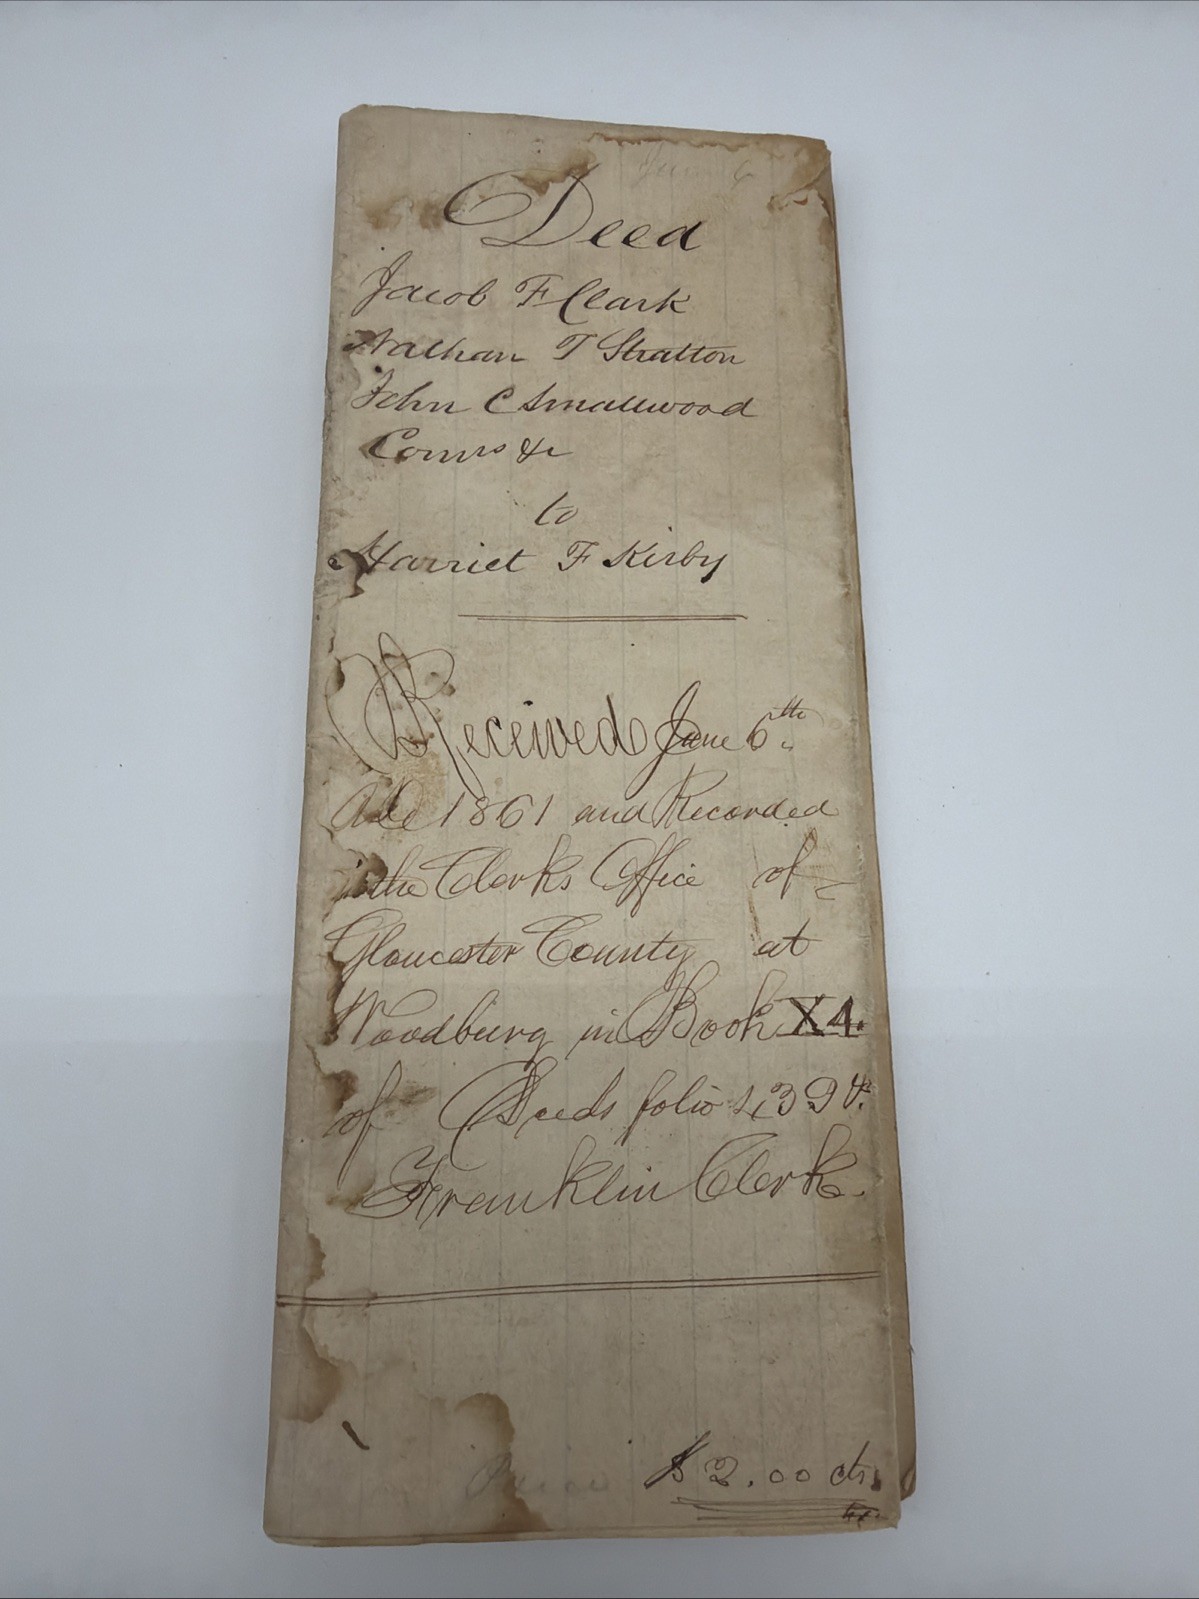 June 6
Deed
Jacob F Clark
Nathan T Stratton
John C Smallwood
Comrs &c
to
Harriet F Kirby
Received June 6th
AD 1861 and Recorded
in the Clerks Office of
Gloucester County at
Woodbury in Book X4.
of Deeds folio 439 &.
Franklin Clerk.
$2.00 cts